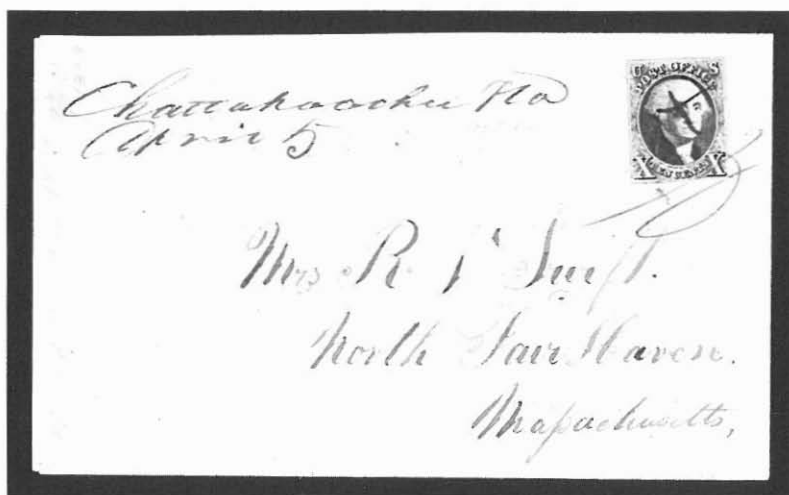 Chattahoochee Fla
April 5
POST OFFICE
X X
5
Mrs R Swift.
North Fair Haven.
Massachusetts,